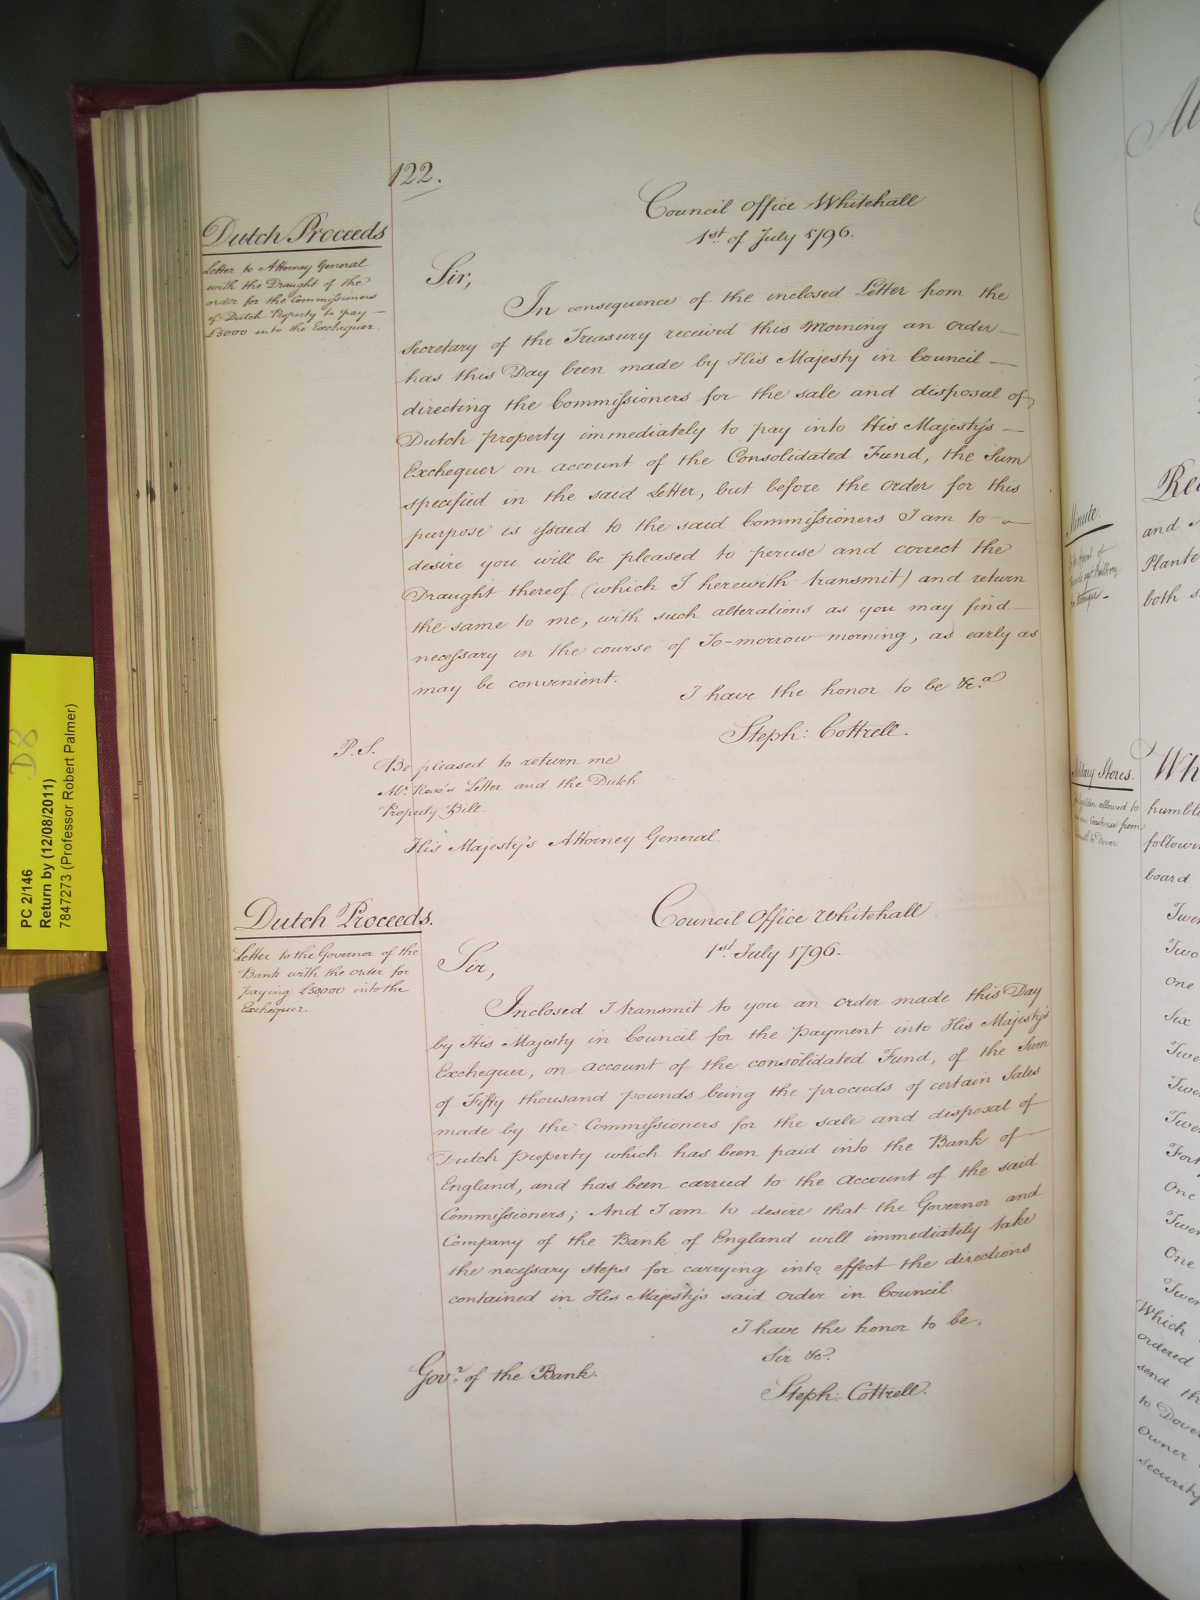 122.
Dutch Proceeds
Letter to Attorney General
with the Draught of the
order for the Commissioners
of Dutch Property to pay —
£5000 into the Exchequer.
Council Office Whitehall
1st of July 1796.
Sir,
In consequence of the inclosed Letter from the
Secretary of the Treasury received this Morning an order —
has this Day been made by His Majesty in Council —
directing the Commissioners for the sale and disposal of
Dutch property immediately to pay into His Majesty's —
Exchequer on account of the Consolidated Fund, the Sum
specified in the said Letter, but before the order for this
purpose is issued to the said Commissioners I am to —
desire you will be pleased to peruse and correct the
Draught thereof (which I herewith transmit) and return
the same to me, with such alterations as you may find —
necessary in the course of To-morrow morning, as early as
may be convenient.
I have the honor to be &c.a
Steph: Cottrell.
P.S.
Be pleased to return me
Mr. Rose's Letter and the Dutch
Property Bill.
His Majesty's Attorney General.
Dutch Proceeds.
Letter to the Governor of the
Bank with the order for
paying £50,000 into the
Exchequer.
Council Office Whitehall
1st July 1796.
Sir,
Inclosed I transmit to you an order made this Day
by His Majesty in Council for the payment into His Majesty's
Exchequer, on account of the consolidated Fund, of the Sum
of Fifty thousand pounds being the proceeds of certain Sales
made by the Commissioners for the sale and disposal of
Dutch property which has been paid into the Bank of —
England, and has been carried to the account of the said
Commissioners; And I am to desire that the Governor and
Company of the Bank of England will immediately take
the necessary steps for carrying into effect the directions
contained in His Majesty's said order in Council.
I have the honor to be,
Sir &c.
Steph: Cottrell.
Govr. of the Bank.
PC 2/146
Return by (12/08/2011)
7847273 (Professor Robert Palmer)
D8
Minute.
and
Plante
both s
Military Stores.
allowed to
from
to Dover
Wh
humbl
followi
board
Twen
Two
One
Six
Twe
Twe
Twe
Fort
One
Twen
One
Twen
Which
ordered
send th
to Dover
Owner
security